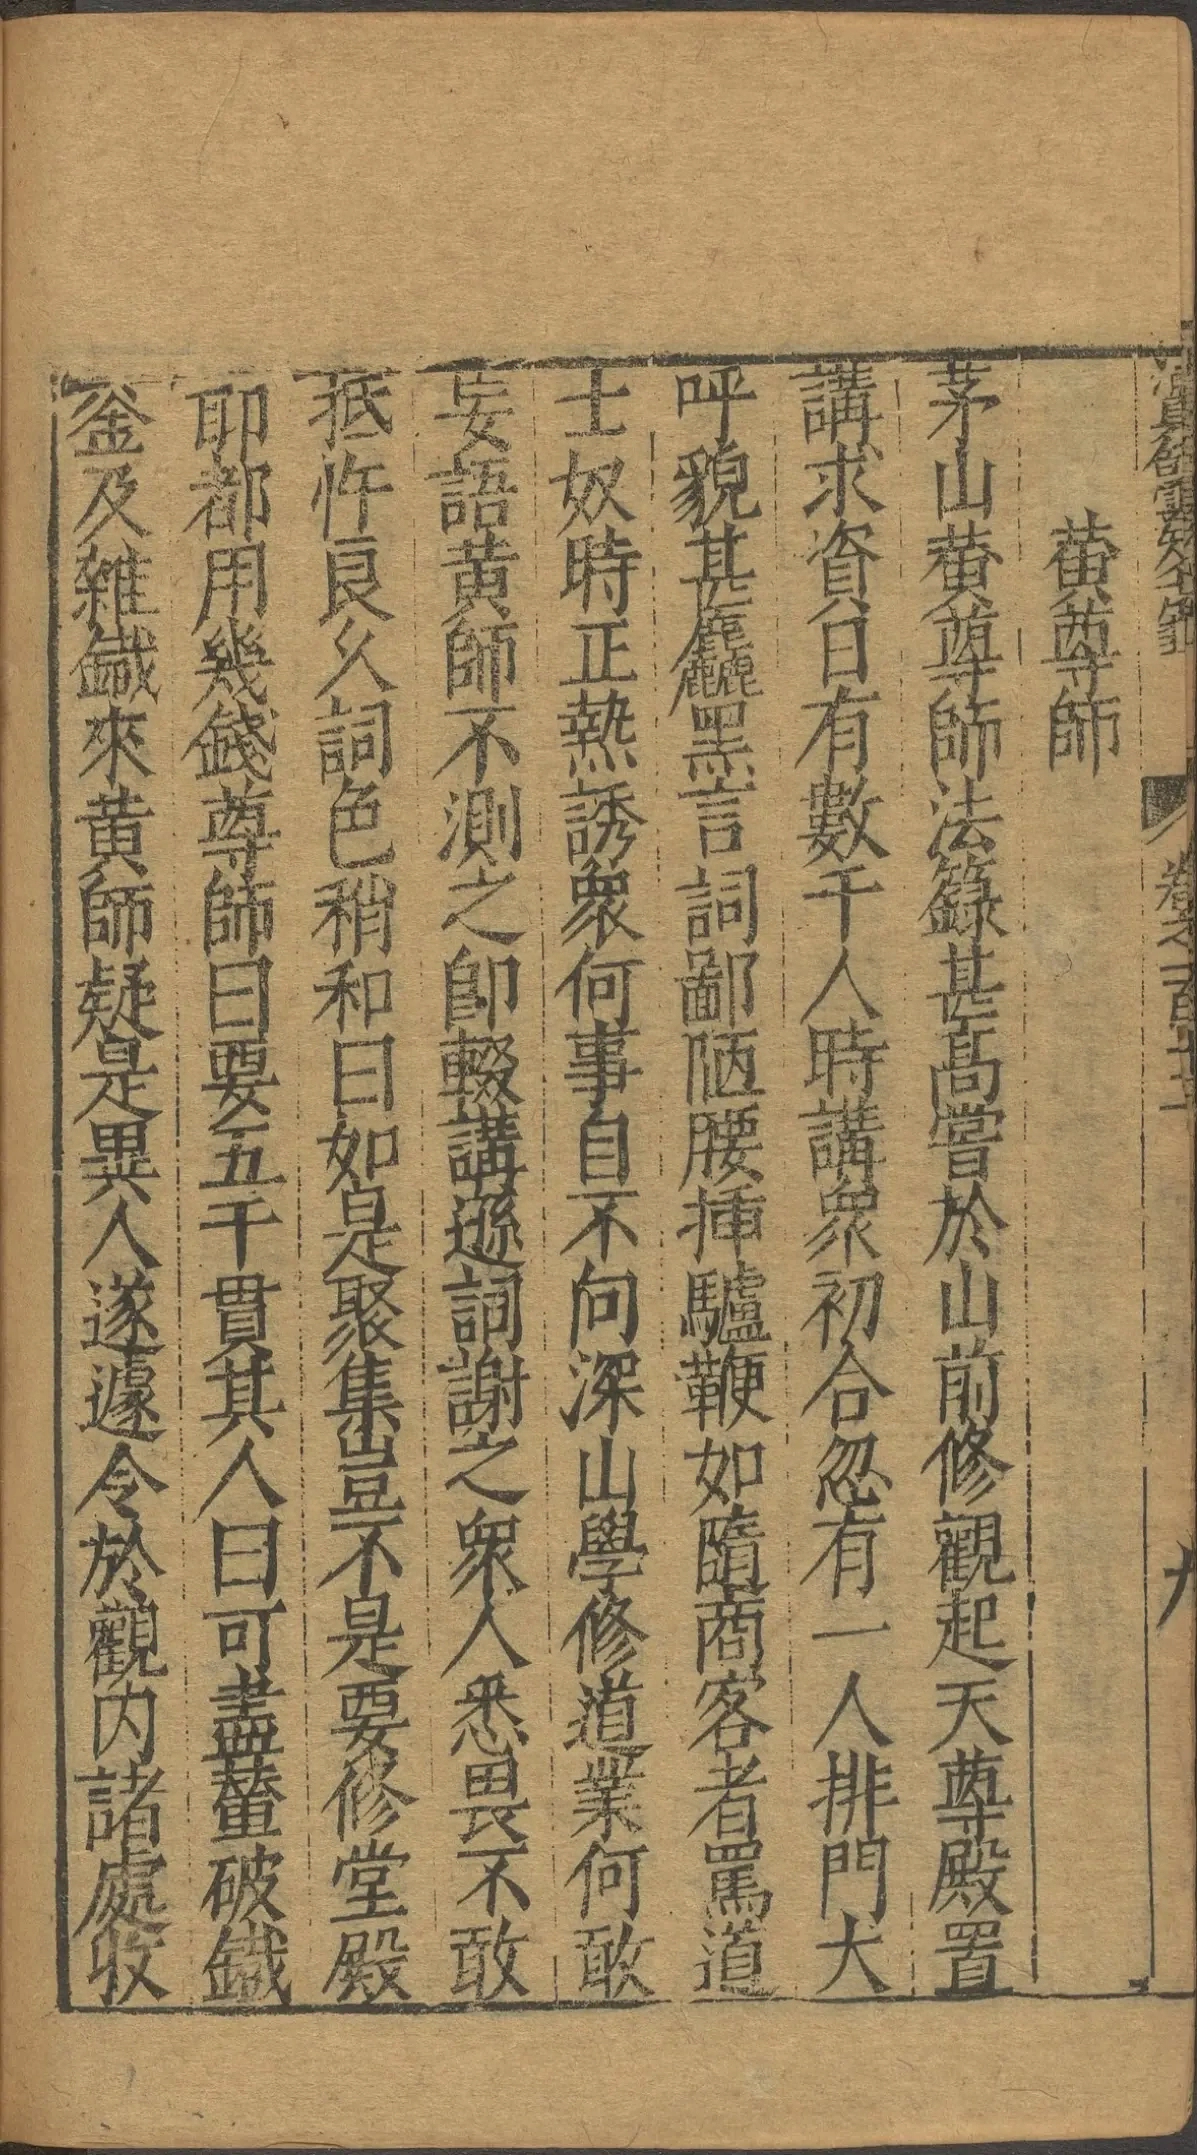 黄尊師
茅山黄尊師法籙甚髙嘗於山前修觀起天尊殿置
講求資日有數千人時講衆初合忽有一人排門大
呼貌甚麤黑言詞鄙陋腰揷驢鞭如隨商客者罵道
士奴時正熱誘衆何事自不向深山學修道業何敢
妄語黄師不測之卽輟講遜詞謝之衆人悉畏不敢
抵忤良久詞色稍和曰如是聚集豈不是要修堂殿
耶都用幾錢尊師曰要五千貫其人曰可盡輦破鐵
釜及雜鐵來黄師疑是異人遂遽令於觀内諸處收